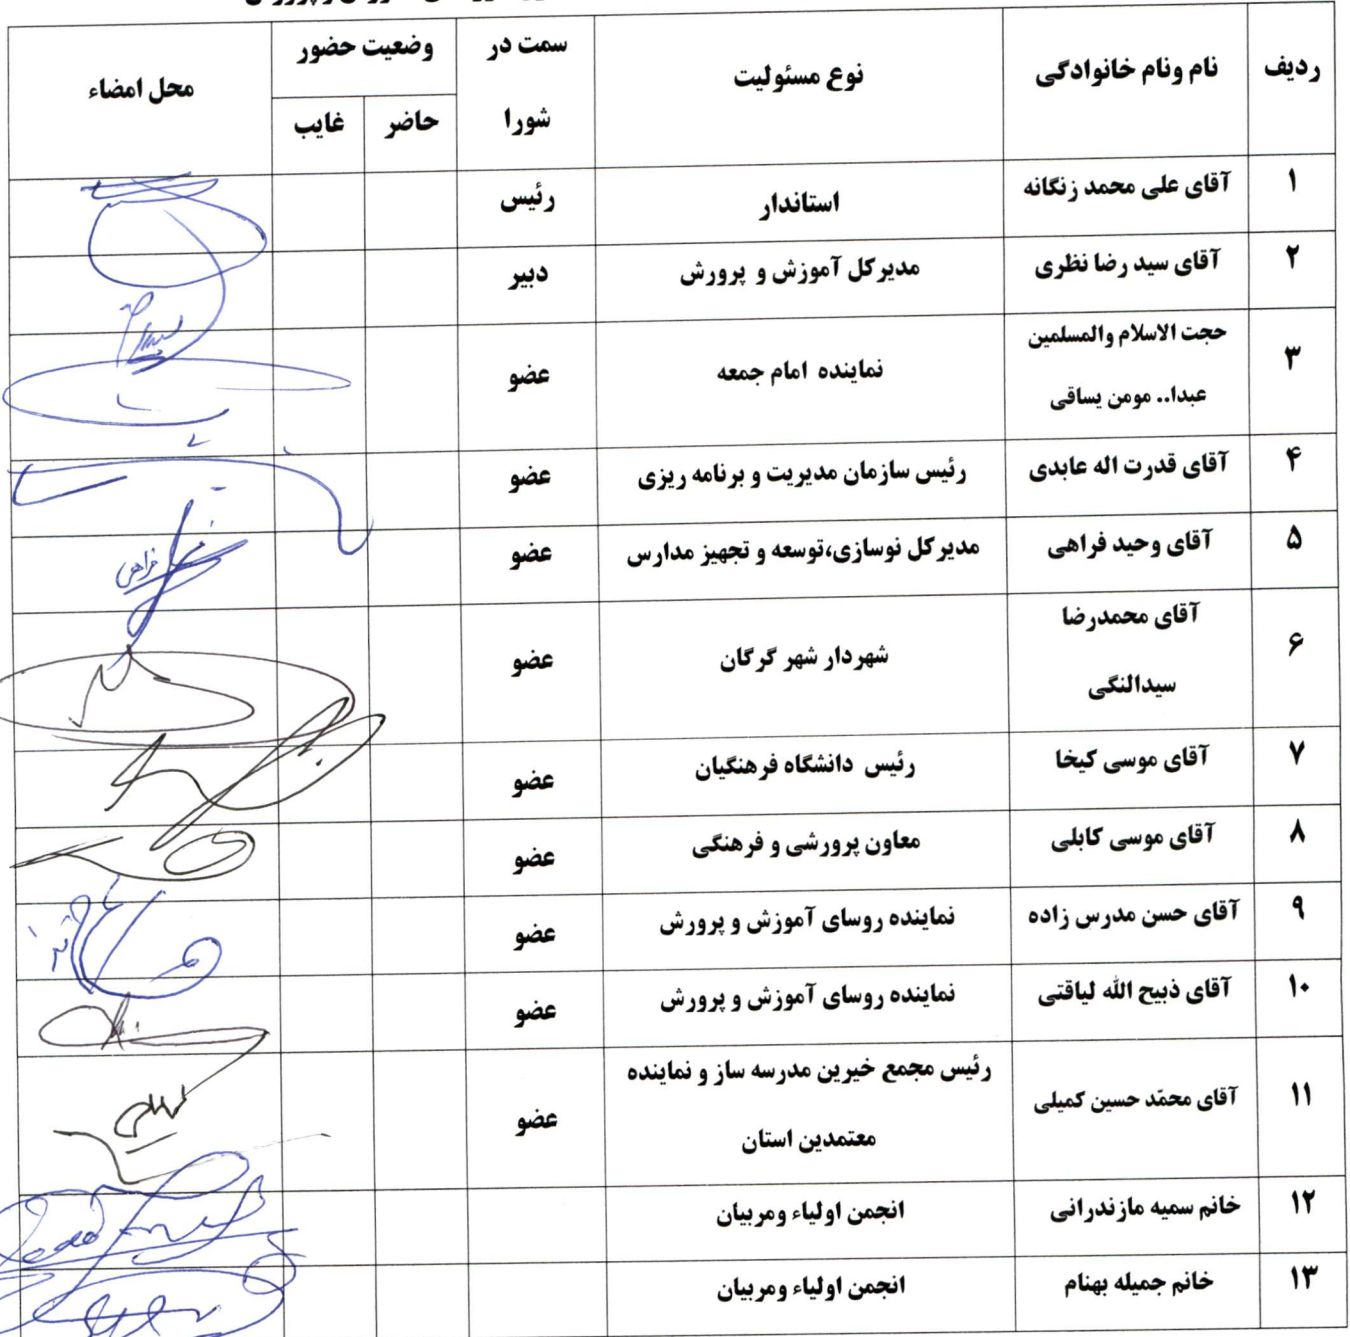 ردیف
نام ونام خانوادگی
نوع مسئولیت
سمت در
شورا
وضعیت حضور
حاضر
غایب
محل امضاء
۱
آقای علی محمد زنگانه
استاندار
رئیس
۲
آقای سید رضا نظری
مدیرکل آموزش و پرورش
دبیر
۳
حجت الاسلام والمسلمین
عبدا.. مومن یساقی
نماینده امام جمعه
عضو
۴
آقای قدرت اله عابدی
رئیس سازمان مدیریت و برنامه ریزی
عضو
۵
آقای وحید فراهی
مدیرکل نوسازی،توسعه و تجهیز مدارس
عضو
فراهی
۶
آقای محمدرضا
سیدالنگی
شهردار شهر گرگان
عضو
۷
آقای موسی کیخا
رئیس دانشگاه فرهنگیان
عضو
۸
آقای موسی کابلی
معاون پرورشی و فرهنگی
عضو
۹
آقای حسن مدرس زاده
نماینده روسای آموزش و پرورش
عضو
۱۰
آقای ذبیح الله لیاقتی
نماینده روسای آموزش و پرورش
عضو
۱۱
آقای محمّد حسین کمیلی
رئیس مجمع خیرین مدرسه ساز و نماینده
معتمدین استان
عضو
۱۲
خانم سمیه مازندرانی
انجمن اولیاء ومربیان
۱۳
خانم جمیله بهنام
انجمن اولیاء ومربیان